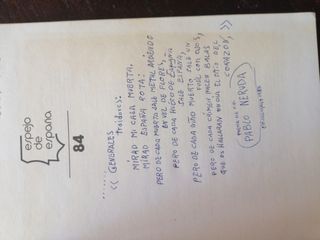 espejo
de
españa
84
<< GENERALES
traidores:
MIRAD MI CASA MUERTA,
MIRAD ESPAÑA ROTA:
PERO DE CADA MUERTO SALE METAL ARDIENDO
EN VEZ DE FLORES,
PERO DE CADA HUECO DE ESPAÑA
SALE ESPAÑA,
PERO DE CADA NIÑO MUERTO SALE UN
FUSIL CON OJOS,
PERO DE CADA CRIMEN NACEN BALAS
QUE OS HALLARAN UN DIA EL SITIO DEL
CORAZON, >>
PABLO NERUDA